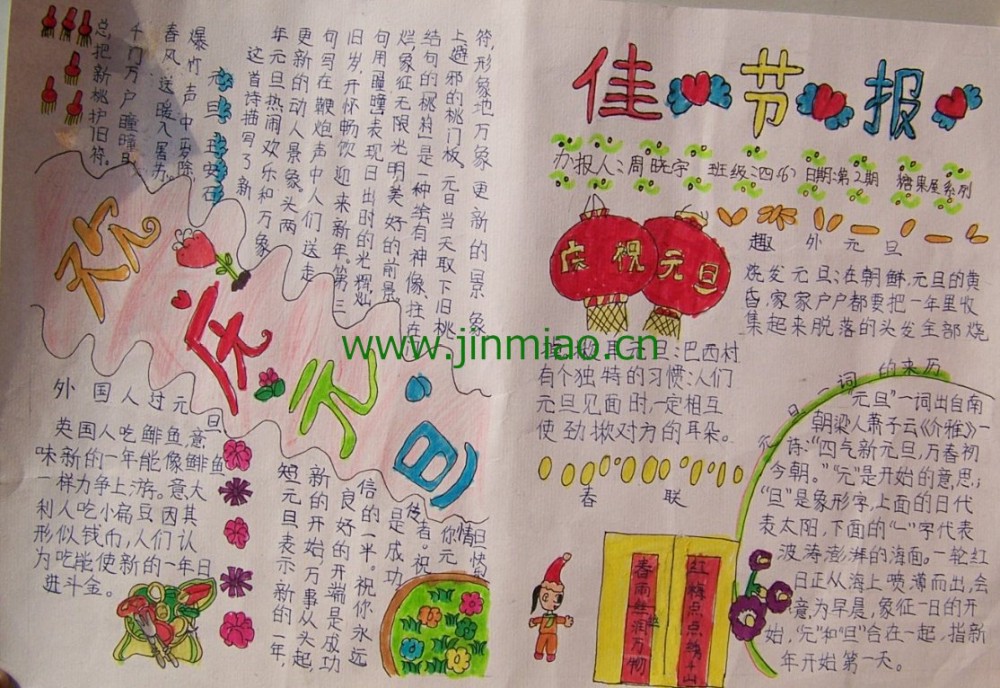 佳节报
办报人:周晓宇 班级:四(6) 日期:第2期 糖果屋系列
元旦 王安石
爆竹声中岁除
春风送暖入屠苏
千门万户瞳瞳日
总把新桃护旧符。
这首诗描写了新
年元旦热闹欢乐和万象
更新的动人景象,头两
句写在鞭炮声中人们送走
旧岁,开怀畅饮迎来新年。第三
句用“瞳瞳”表现日出时的光辉灿
烂,象征无限光明美好的前景
结句的“桃符”是一种绘有神像、挂在
上避邪的桃门板,元日当天取下旧桃
符,形象地万象更新的景象
欢庆元旦
外国人过元旦
英国人吃鲱鱼意
味新的一年能像鲱鱼
一样力争上游。意大
利人吃小扁豆因其
形似钱币,人们认
为吃能使新的一年日
进斗金。
短元旦表示新的一年,
新的开始万事从头起,
良好的开端是成功
信的一半。祝你永远
是成功
使者。祝
你元
庆祝元旦
趣外元旦
烧发元旦:在朝鲜,元旦的黄
昏,家家户户都要把一年里收
集起来脱落的头发全部烧
揪耳元旦:巴西村
有个独特的习惯:人们
元旦见面时,一定相互
使劲揪对方的耳朵。
春联
春雨丝丝润万物
红梅点点绣千山
词的来历
“元旦”一词出自南
朝梁人萧子云《介雅》一
诗:“四气新元旦,万香初
今朝。”“元”是开始的意思;
“旦”是象形字,上面的日代
表太阳,下面的“一”字代表
波涛澎湃的海面。一轮红
日正从海上喷薄而出,会
意,为早晨,象征一日的开
始,“元”和“旦”合在一起,指新
年开始第一天。
www.jinmiao.cn